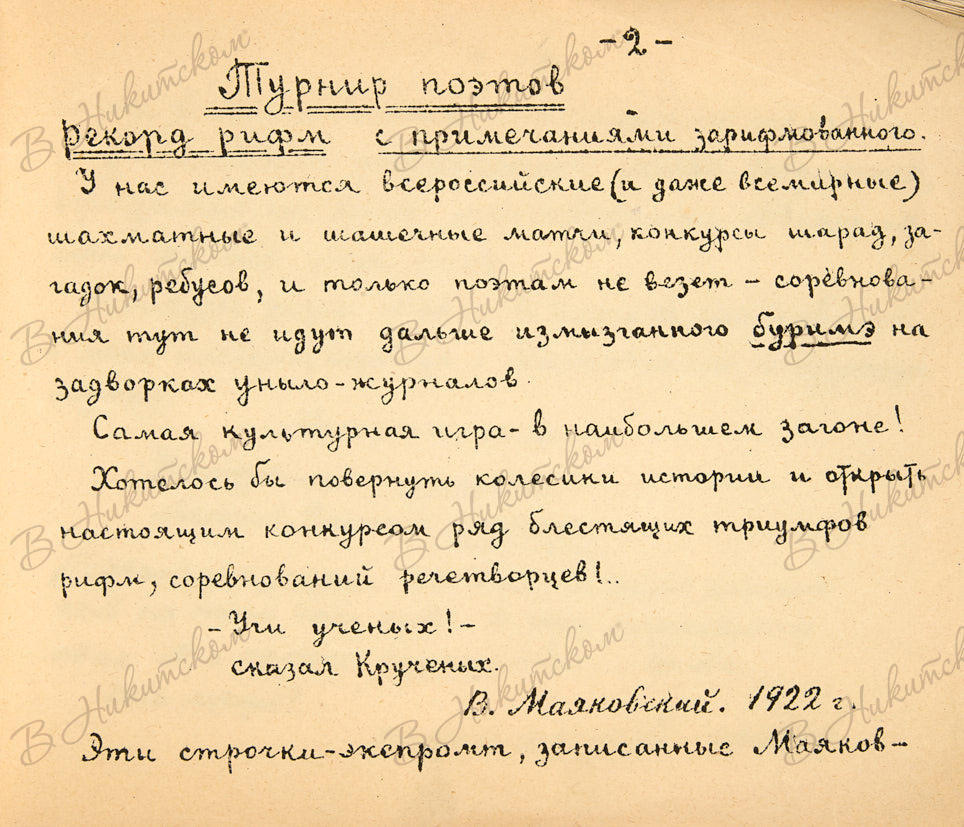 -2-
Турнир поэтов
рекорд рифм с примечаниями зарифмованного.
У нас имеются всероссийские (и даже всемирные)
шахматные и шашечные матчи, конкурсы шарад, за-
гадок, ребусов, и только поэтам не везет - соревнова-
ния тут не идут дальше измызганного буримэ на
задворках уныло-журналов.
Самая культурная игра - в наибольшем загоне!
Хотелось бы повернуть колесики истории и открыть
настоящим конкурсом ряд блестящих триумфов
рифм, соревнований речетворцев!..
- Учи ученых! -
сказал Крученых.
В. Маяковский. 1922 г.
Эти строчки-экспромт, записанные Маяков-
В Никитском